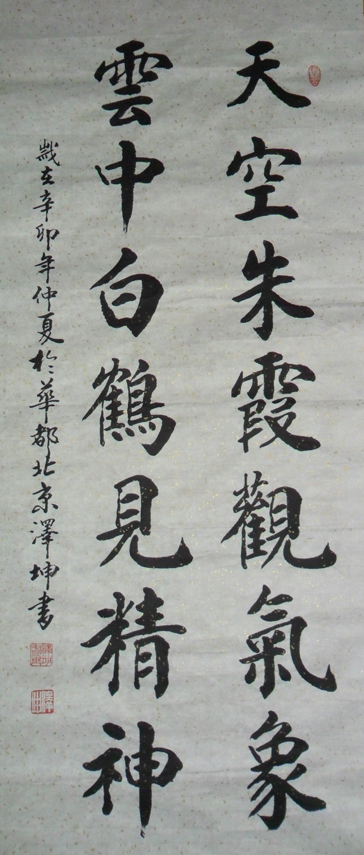 天空朱霞觀氣象
雲中白鶴見精神
歲在辛卯年仲夏於華都北京澤坤書